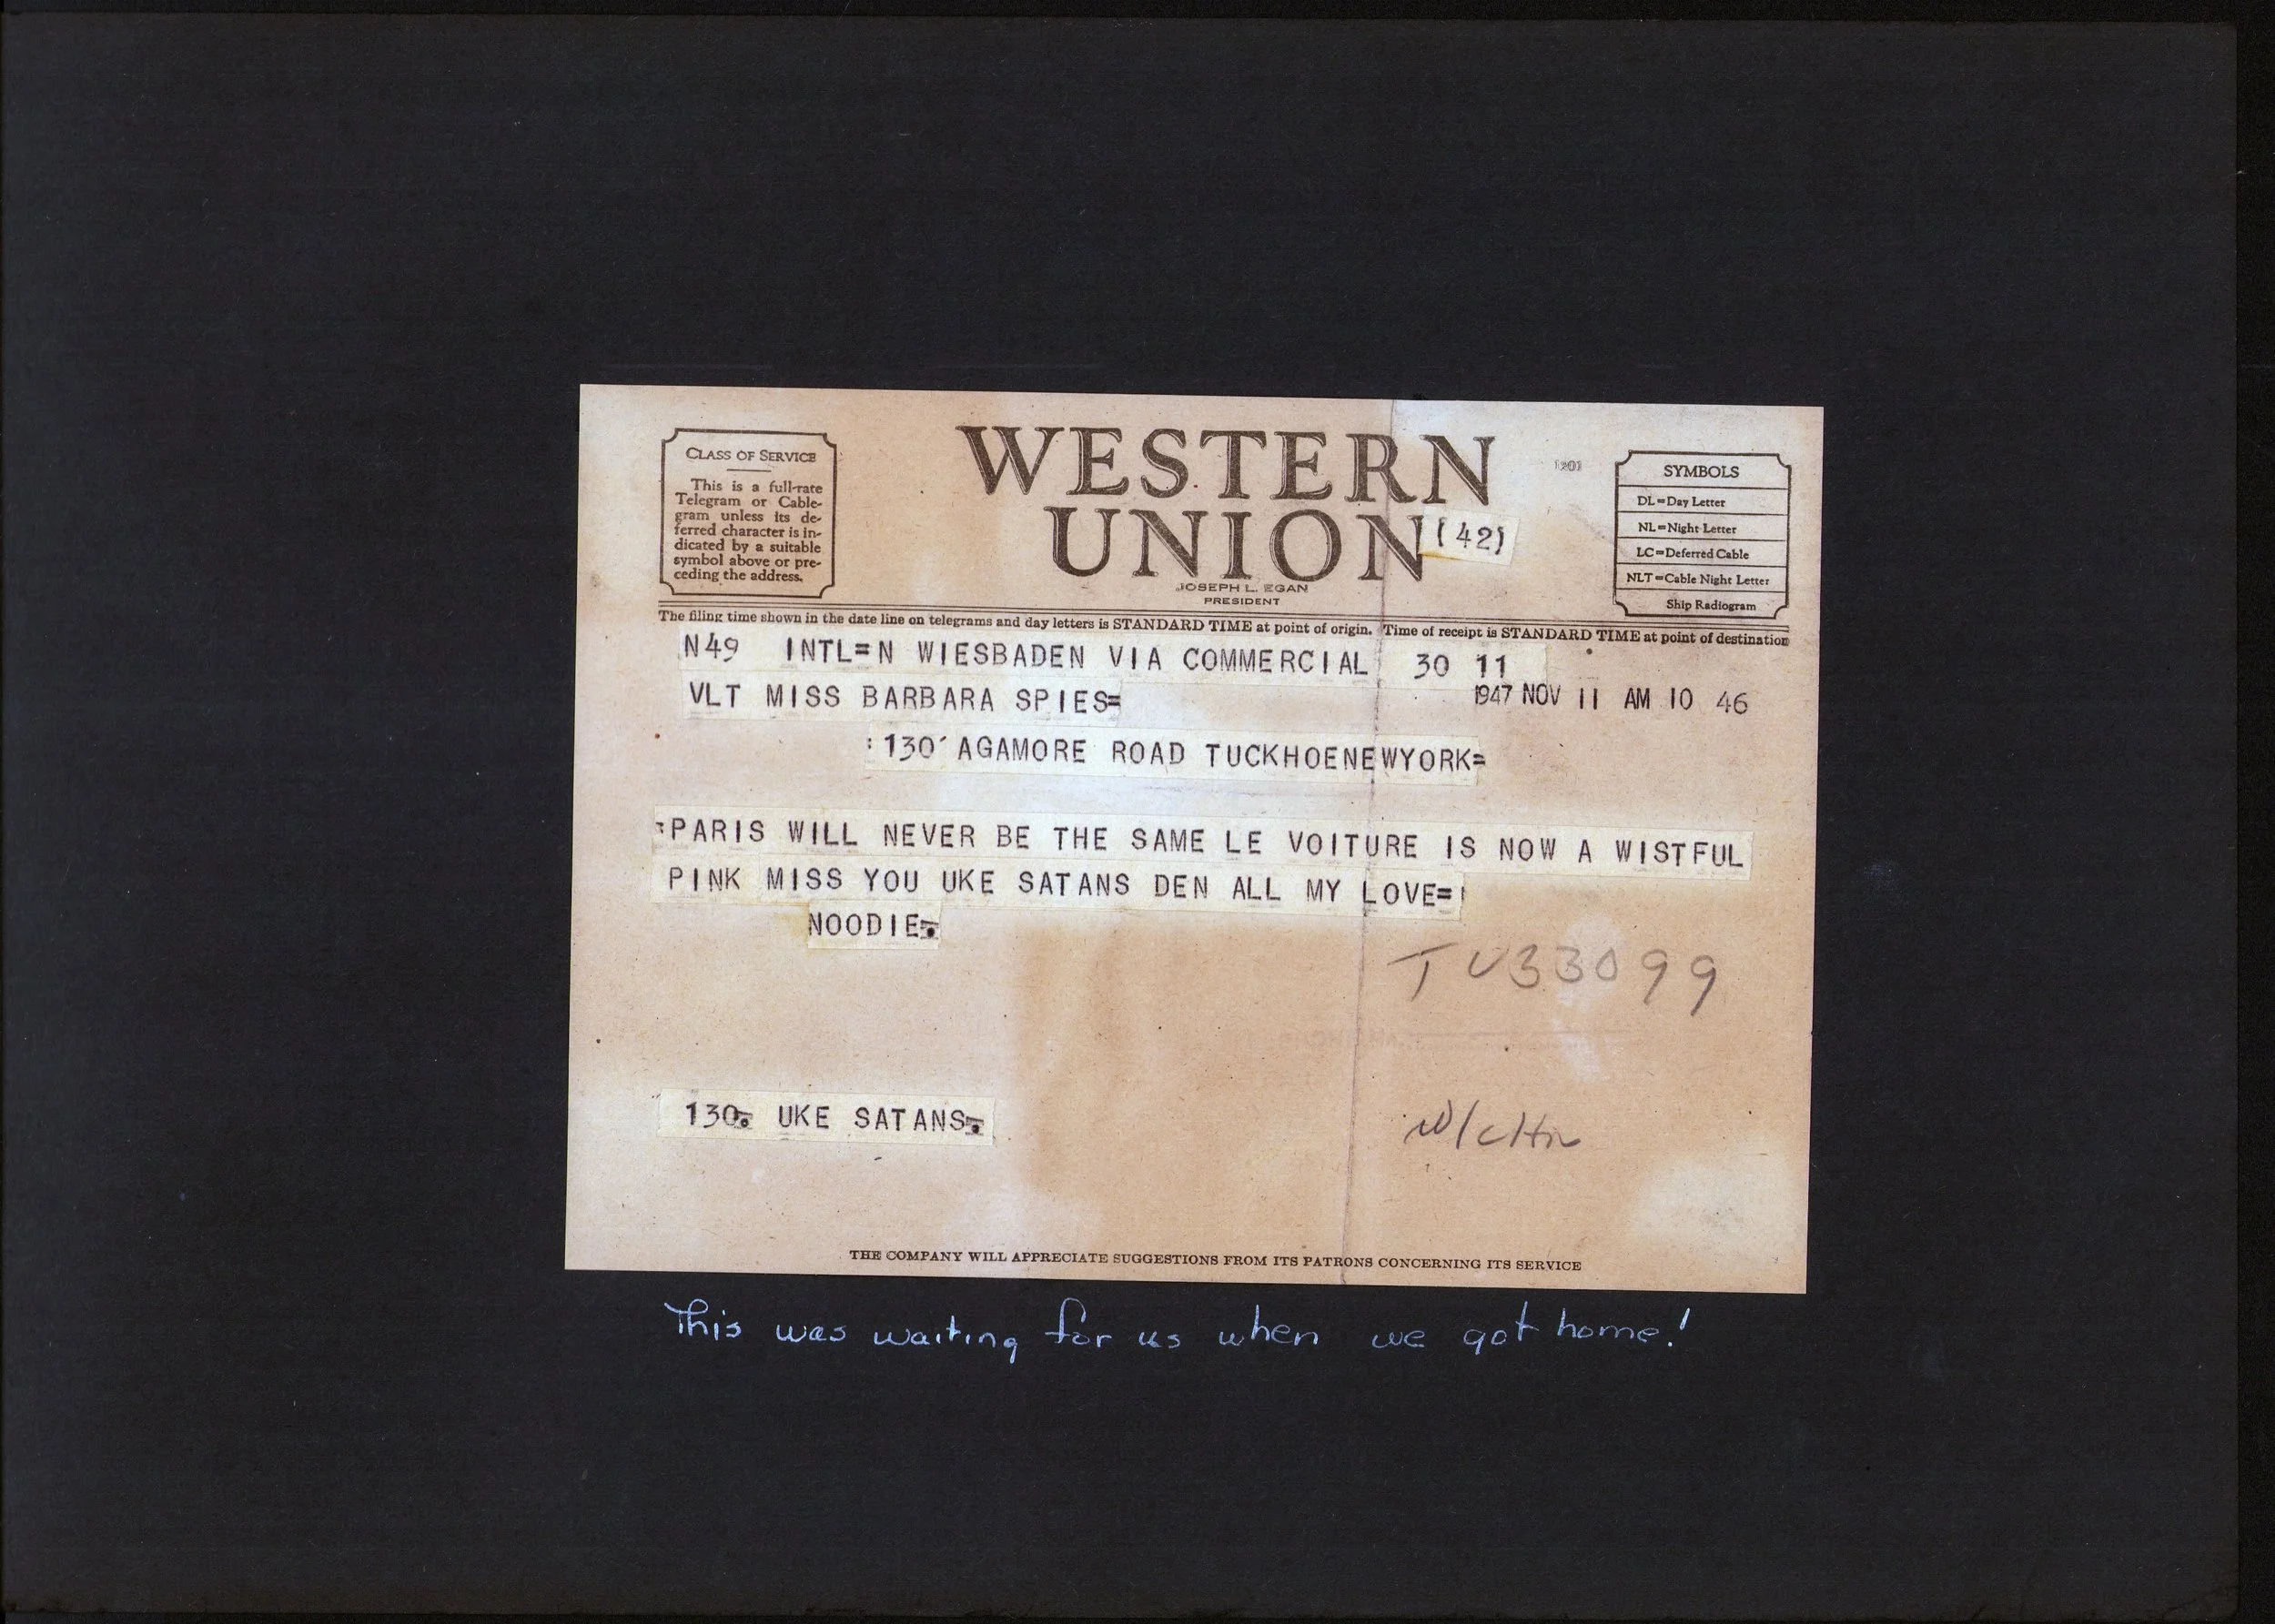 CLASS OF SERVICE
This is a full-rate
Telegram or Cable-
gram unless its de-
ferred character is in-
dicated by a suitable
symbol above or pre-
ceding the address.
WESTERN
UNION
(42)
JOSEPH L. EGAN
PRESIDENT
1201
SYMBOLS
DL=Day Letter
NL=Night Letter
LC=Deferred Cable
NLT=Cable Night Letter
Ship Radiogram
The filing time shown in the date line on telegrams and day letters is STANDARD TIME at point of origin. Time of receipt is STANDARD TIME at point of destination
N49 INTL=N WIESBADEN VIA COMMERCIAL 30 11
VLT MISS BARBARA SPIES=
1947 NOV 11 AM 10 46
:130' AGAMORE ROAD TUCKHOENEWYORK=
:PARIS WILL NEVER BE THE SAME LE VOITURE IS NOW A WISTFUL
PINK MISS YOU UKE SATANS DEN ALL MY LOVE=
NOODIE.
TU33099
130. UKE SATANS.
THE COMPANY WILL APPRECIATE SUGGESTIONS FROM ITS PATRONS CONCERNING ITS SERVICE
This was waiting for us when we got home!